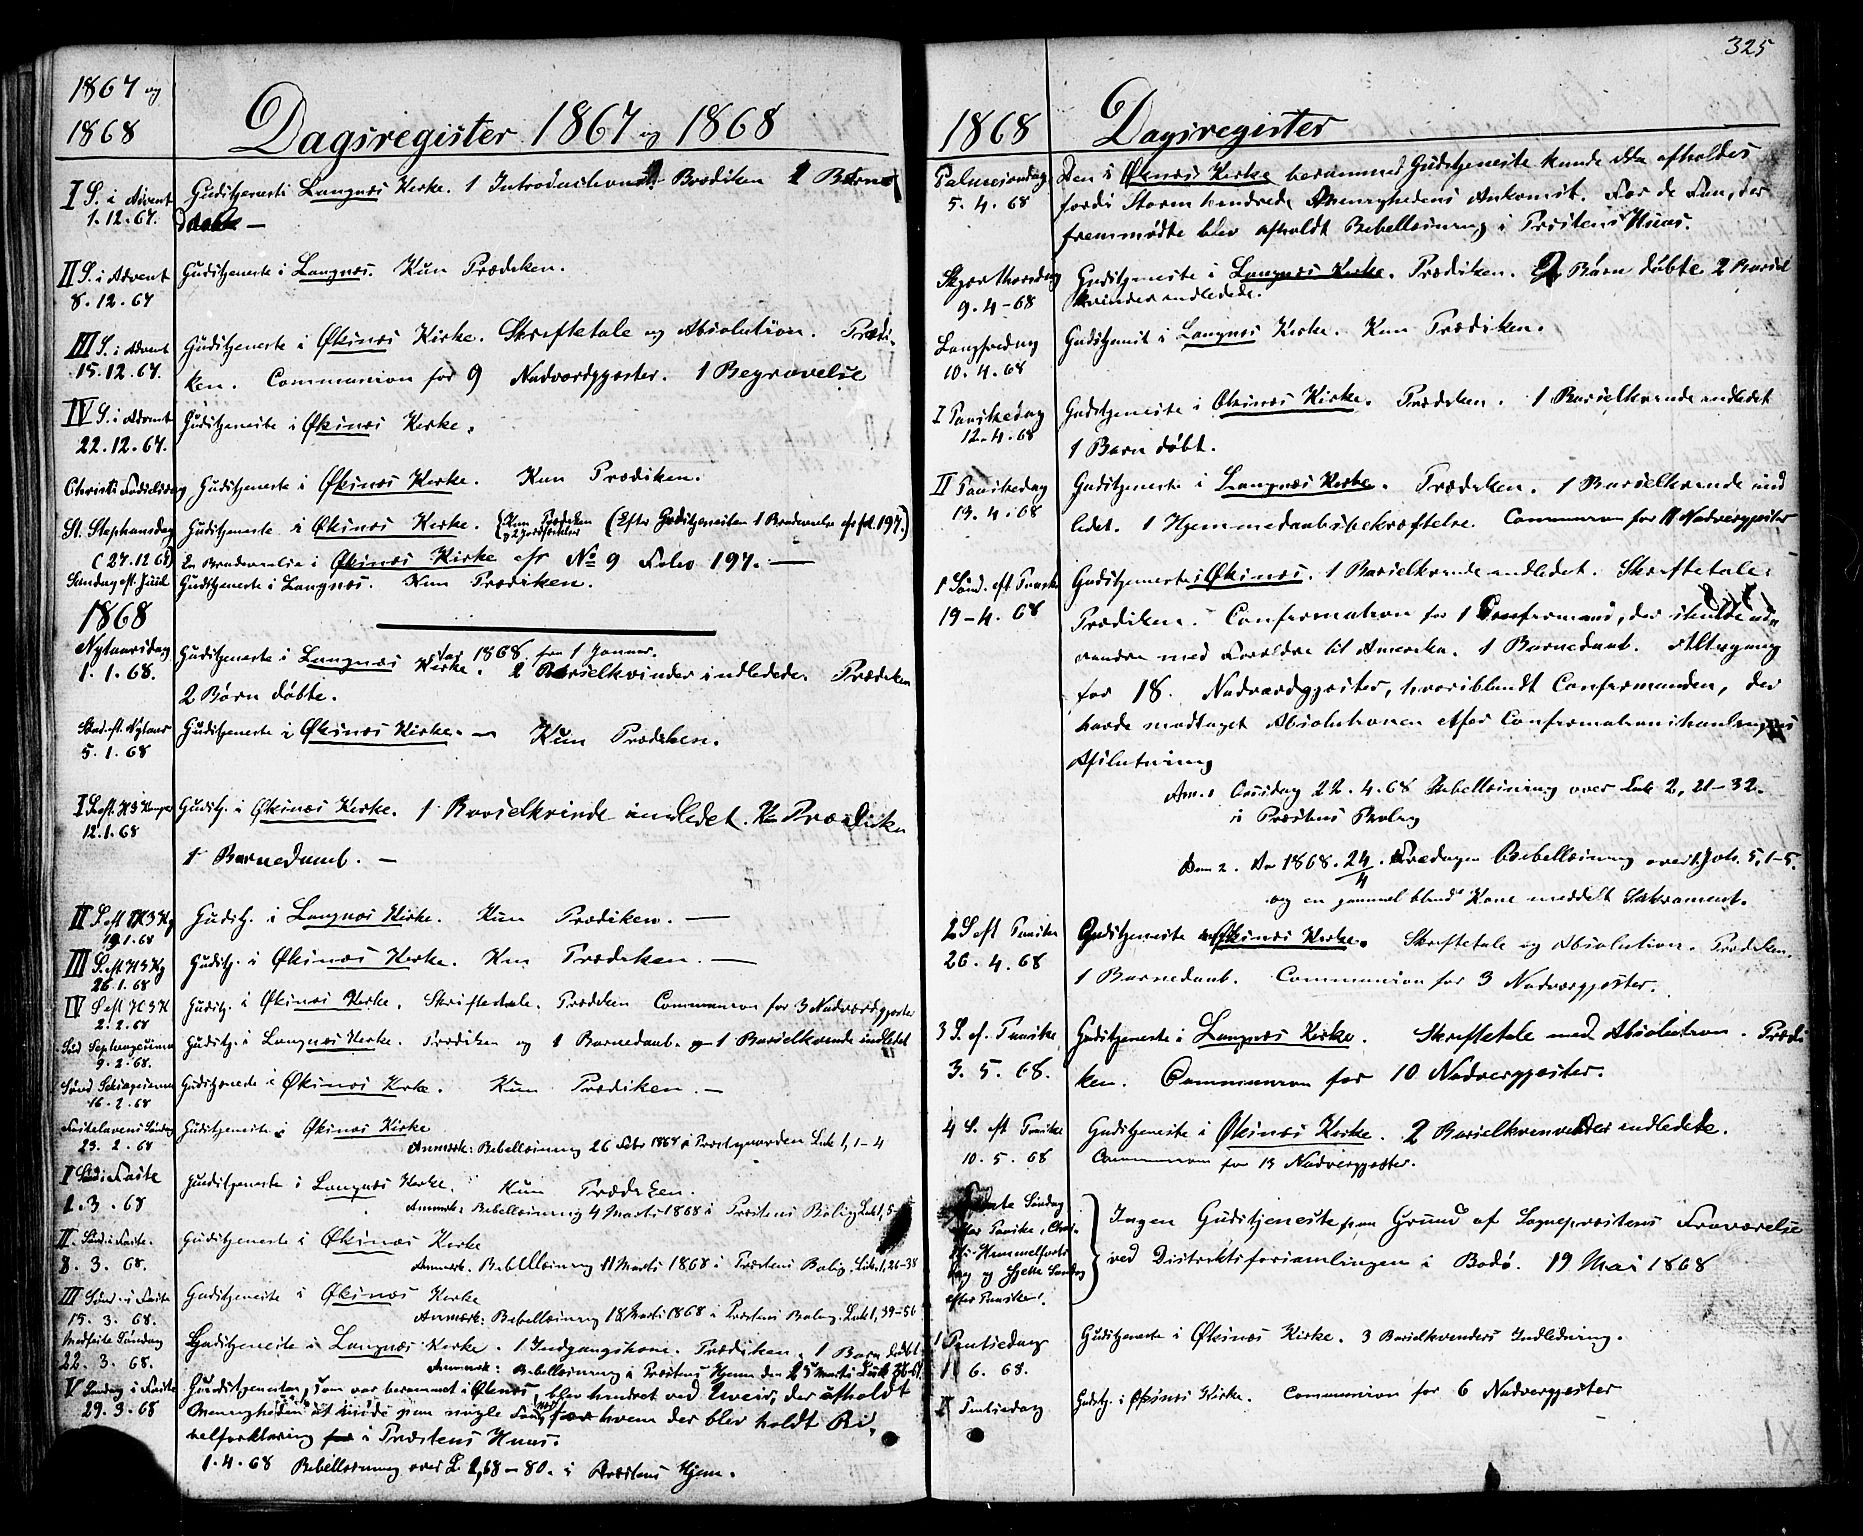 1867 og
1868
Dagsregister 1867 og 1868
I S. i Advent
1.12.67.
Gudstjeneste i Langnæs Kirke. 1 Introductions Prædiken 2 Børn
døbte —
II S. i Advent
8.12.67
Gudstjeneste i Langnæs. Kun Prædiken.
III S. i Advent
15.12.67.
Gudstjeneste i Øksnæs Kirke. Skriftetale og Absolution. Prædi-
ken. Communion for 9 Nadverdgjæster. 1 Begravelse
IV S. i Advent
22.12.67.
Gudstjeneste i Øksnæs Kirke.
Christi Fødselsdag
Gudstjeneste i Øksnæs Kirke. Kun Prædiken.
St. Stephansdag
Gudstjeneste i Øksnæs Kirke. (Kun Prædiken (Efter Gudstjenesten 1 Brudevielse cfr fol. 197.)
(27.12 68)
En Brudevielse i Øksnæs Kirke cfr No 9 Folio 197. —
Søndag eft. Juul
Gudstjeneste i Langnæs. Kun Prædiken.
1868
for 1868 fra 1 Januar.
Nytaarsdag
1.1.68.
Gudstjeneste i Langnæs Kirke. 2 Barselkvinder indledede. Prædiken
2 Børn døbte.
Sønd. eft. Nytaar
5.1.68
Gudstjeneste i Øksnæs Kirke. — Kun Prædiken.
I S. eft. H 3 Konger
12.1.68
Gudstj. i Øksnæs Kirke. 1 Barselkvinde indledet. Kun Prædiken
1 Barnedaab. —
II S. eft H 3 Kg
19.1.68
Gudstj. i Langnæs Kirke. Kun Prædiken. —
III S. eft. H 3 Kg
26.1.68
Gudstj. i Øksnæs Kirke. Kun Prædiken. —
IV S eft H 3 K
2.2.68
Gudstj. i Øksnæs Kirke. Skriftetale. Prædiken Communion for 3 Nadverdgjæster
Sønd Septuagesima
9.2.68.
Gudstj. i Langnæs Kirke. Prædiken og 1 Barnedaab. og 1 Barselkvinde indledet
Sønd Seksagesima
16.2.68
Gudstjeneste i Øksnæs Kirke. Kun Prædiken. —
Fastelavens Søndag
23.2.68
Gudstjeneste i Øksnæs Kirke
Anmærk: Bibellæsning 26 Febr 1868 i Præstegaarden Luk 1, 1–4
I Sønd i Faste
1.3.68
Gudstjeneste i Langnæs Kirke. Kun Prædiken.
Anmærk: Bibellæsning 4 Marts 1868 i Præstens Bolig Luk 1, 5–
II. Sønd i Faste.
8.3.68.
Gudstjeneste i Øksnæs Kirke
Anmærk. Bibellæsning 11 Marts 1868 i Præstens Bolig. Luk. 1, 26–38
III Sønd. i Faste
15.3.68.
Gudstjeneste i Øksnæs Kirke
Anmærk: Bibellæsning 18 Marts 1868 i Præstens Bolig. Luk 1, 39–56
Midfaste Søndag
22.3.68.
Gudstjeneste i Langnæs Kirke. 1 Indgangskone. Prædiken. 1 Barn døbt
Anmærk: Bibellæsning i Præstens Hjem den 25 Marts Luk
V Søndag i Faste
29.3.68
Gudstjenesten, som var berammet i Øksnæs, blev hindret ved Uveir, der afholdt
Menigheden at møde paa nogle Faa nær for hvem der blev holdt Bi-
belforklaring i Præstens Huus.
1.4.68 Bibellæsning over L. 1, 68–80. i Præstens Hjem.
325
1868
Dagsregister
Palmesøndag
5.4.68
Den i Øksnæs Kirke berammed Gudstjeneste kunde ikke afholdes
fordi Storm hindrede Menighedens Ankomst. For de Faa, der
fremmødte blev afholdt Bibellæsning i Præstens Huus.
Skjærthorsdag
9.4–68
Gudstjeneste i Langnæs Kirke. Prædiken. 2 Børn døbte 2 Barsel
kvinder indledede.
Langfredag
10.4.68
Gudstjenest i Langnæs Kirke. Kun Prædiken.
I Paaskedag
12.4.68
Gudstjeneste i Øksnæs Kirke. Prædiken. 1 Barselkvinde indledet
1 Barn døbt.
II Paaskedag
13.4.68
Gudstjeneste i Langnæs Kirke. Prædiken. 1 Barselkvinde ind
ledet. 1 Hjemmedaabsbekræftelse. Communion for 11 Nadvergjæster
1 Sønd. eft Paaske
19–4.68
Gudstjeneste i Øksnæs. 1 Barselkvinde indledet. Skriftetale.
Prædiken. Confirmation for 1 Confirmand, der skulde ud-
vandre med Forældre til Amerika. 1 Barnedaab. Altergang
for 18. Nadverdgjæster, hvoriblandt Confirmanden, der
havde modtaget Absolutionen efter Confirmationshandlingens
Afslutning
Anm. 1 Onsdag 22.4.68 Bibellæsning over Luk 2, 21–32.
i Præstens Bolig
Anm 2. Aar 1868. 24/4. Fredagen Bibellæsning over 1 Joh. 5, 1–5.
og en gammel blind Kone meddelt Sakrament.
2 S. eft Paaske
26.4.68
Gudstjeneste i Øksnæs Kirke. Skriftetale og Absolution. Prædiken.
1 Barnedaab. Communion for 3 Nadvergjæster.
3 S. ef. Paaske
3.5.68.
Gudstjeneste i Langnæs Kirke. Skriftetale med Absolution. Prædi
ken. Communion for 10 Nadvergjæster.
4 S. eft Paaske
10.5.68
Gudstjeneste i Øksnæs Kirke. 2 Barselkvinder indledede.
Communion for 13 Nadvergjæster.
Femte Søndag
efter Paaske, Chri-
sti Himmelfarts
dag og sjette Søndag
efter Paaske.
Ingen Gudstjeneste paa Grund af Sognepræstens Fraværelse
ved Distriktsforsamlingen i Bodø. 19 Mai 1868
1 Pintsedag
1 6.68.
Gudstjeneste i Øksnæs Kirke. 3 Barselkvinders Indledning.
II Pintsedag
Gudstj. i Øksnæs Kirke. Communion for 6 Nadvergjæster